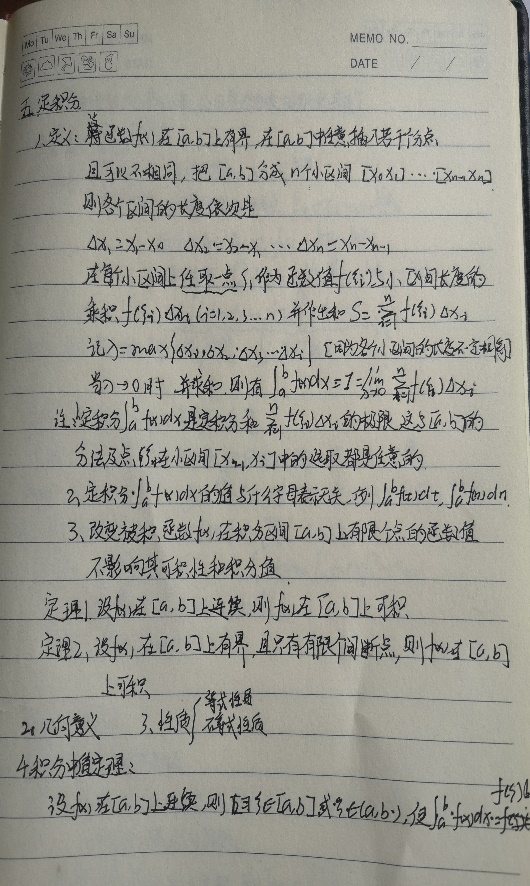 Mo Tu We Th Fr Sa Su
MEMO NO.
DATE / /
五.定积分
1.定义:设函数f(x)在[a,b]上有界,在[a,b]中任意插入若干个分点
且可以不相同,把[a,b]分成n个小区间[x₀x₁]…[xₙ₋₁xₙ]
则各个区间的长度依次是
Δx₁=x₁-x₀ Δx₂=x₂-x₁ … Δxₙ=xₙ-xₙ₋₁
在每个小区间上任取一点ξᵢ,作为函数值f(ξᵢ)与小区间长度的
乘积f(ξᵢ)Δxᵢ(i=1,2,3…n)并作出和S=∑ᵢ₌₁ⁿf(ξᵢ)Δxᵢ
记λ=max{Δx₁,Δx₂,Δx₃…Δxᵢ}[因为各个小区间的长度不一定相同]
当λ→0时 并求和 则有∫ₐᵇf(x)dx=I=lim_{λ→0}∑ᵢ₌₁ⁿf(ξᵢ)Δxᵢ
注:1.定积分∫ₐᵇf(x)dx是定积分和∑ᵢ₌₁ⁿf(ξᵢ)Δxᵢ的极限 这与[a,b]的
方法及点ξᵢ在小区间[xᵢ₋₁,xᵢ]中的选取都是任意的
2,定积分∫ₐᵇf(x)dx的值与什么字母表示无关,例∫ₐᵇf(t)dt,∫ₐᵇf(u)du.
3、改变被积函数f(x)在积分区间[a,b]上有限个点的函数值
不影响其可积性和积分值
定理1.设f(x)在[a,b]上连续,则f(x)在[a,b]上可积
定理2,设f(x)在[a,b]上有界,且只有有限个间断点,则f(x)在[a,b]
上可积
2,几何意义 3、性质{等式性质
不等式性质
4积分中值定理:
设f(x)在[a,b]上连续,则∃ξ∈[a,b]或ξ∈(a,b),使∫ₐᵇf(x)dx=